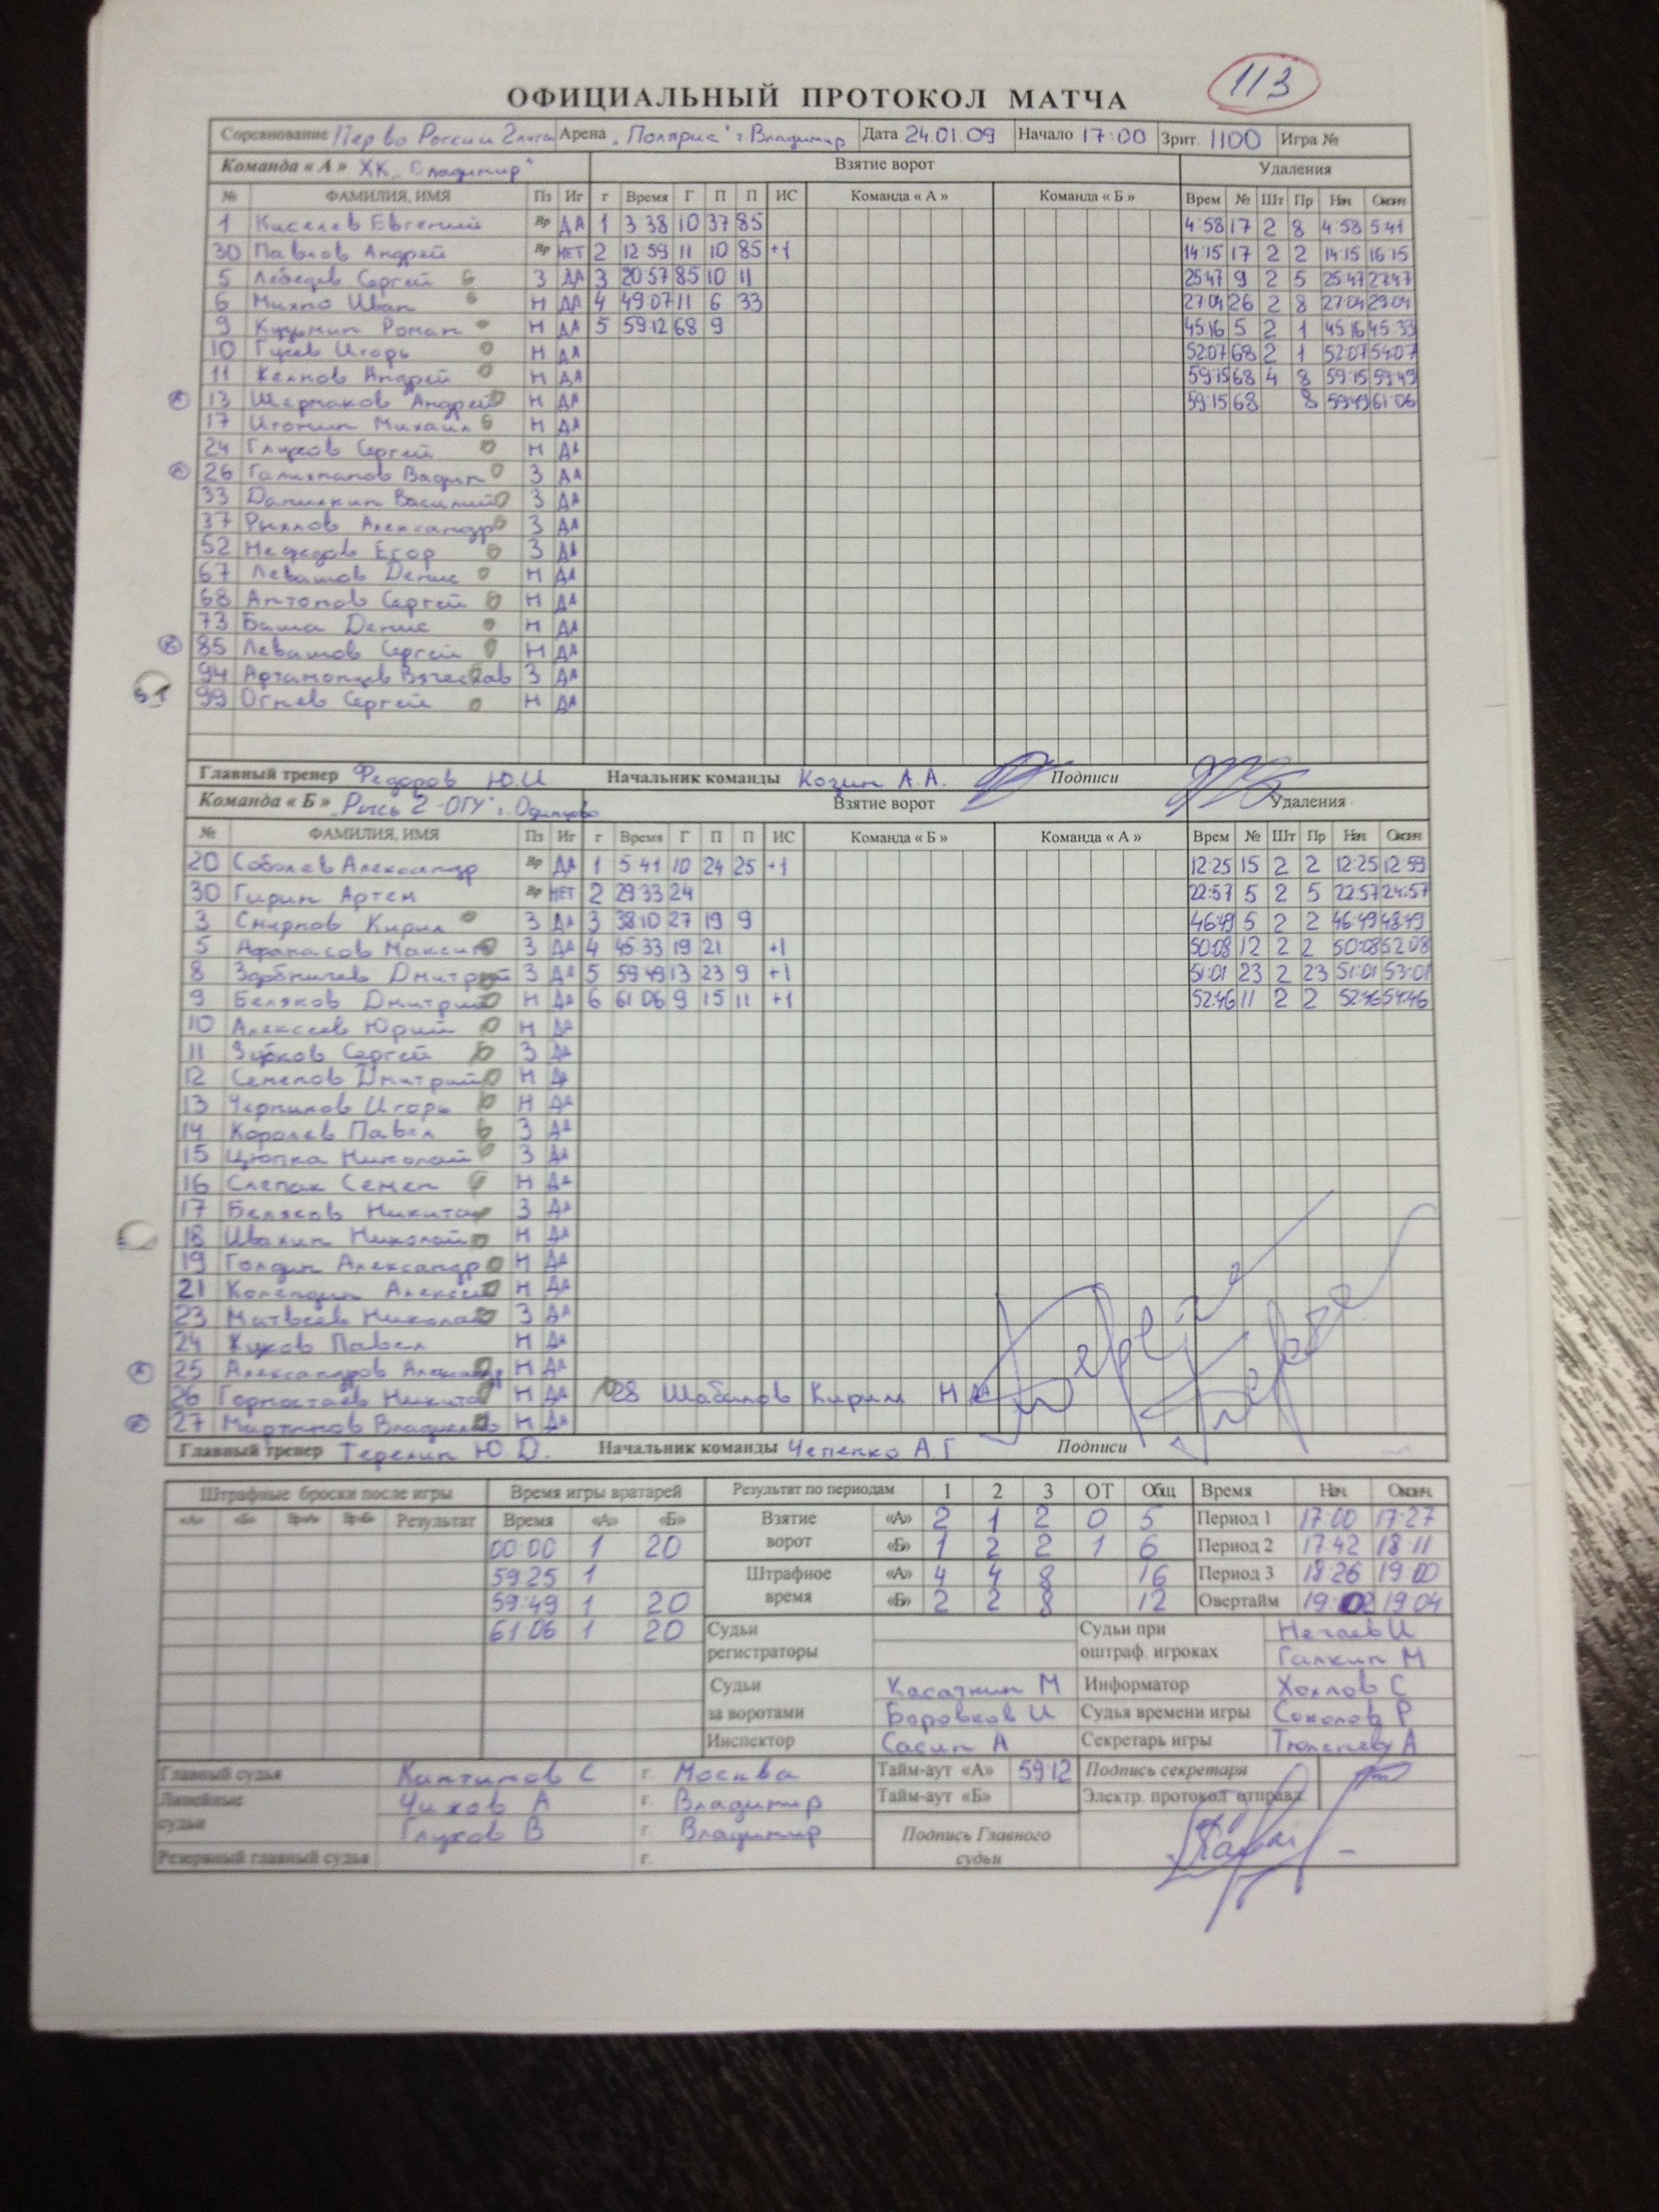 113
ОФИЦИАЛЬНЫЙ ПРОТОКОЛ МАТЧА
Соревнование Перво России 2 лига Арена „Полярис" г Владимир Дата 24.01.09 Начало 17:00 Зрит. 1100 Игра №
Команда « А » ХК „Владимир" Взятие ворот Удаления
№ ФАМИЛИЯ, ИМЯ Пз Иг г Время Г П П ИС Команда « А » Команда « Б » Врем № Шт Пр Нач Оконч
1 Киселев Евгений Вр ДА 1 3 38 10 37 85 4:58 17 2 8 4:58 5:41
30 Павлов Андрей Вр НЕТ 2 12 59 11 10 85 +1 14:15 17 2 2 14:15 16:15
5 Лебедев Сергей З ДА 3 20 57 85 10 11 25 47 9 2 5 25 47 27 47
6 Иван Н ДА 4 49 07 11 6 33 27 04 26 2 8 27 04 29 04
9 Кузьмин Роман Н ДА 5 59 12 68 9 45 16 5 2 1 45 16 45 33
10 Гусев Игорь Н ДА 52 07 68 2 1 52 07 54 07
11 Андрей Н ДА 59 15 68 4 8 59 15 59 49
13 Шермаков Андрей Н ДА 59 15 68 8 59 49 61 06
17 Игонин Михаил Н ДА
24 Глухов Сергей Н ДА
26 Вадим З ДА
33 Данилкин Василий З ДА
37 Рыхлов Александр З ДА
52 Нефедов Егор З ДА
67 Левашов Денис Н ДА
68 Антонов Сергей Н ДА
73 Баша Денис Н ДА
85 Левашов Сергей Н ДА
94 Артамонцев Вячеслав З ДА
99 Огнев Сергей Н ДА
Главный тренер Федоров Ю.И Начальник команды Козин А.А. Подписи
Команда « Б » „Рысь 2 -ОГУ" г. Одинцово Взятие ворот Удаления
№ ФАМИЛИЯ, ИМЯ Пз Иг г Время Г П П ИС Команда « Б » Команда « А » Врем № Шт Пр Нач Оконч
20 Соболев Александр Вр ДА 1 5 41 10 24 25 +1 12:25 15 2 2 12:25 12 59
30 Гирин Артем Вр НЕТ 2 29 33 24 22:57 5 2 5 22 57 24:57
3 Смирнов Кирил З ДА 3 38 10 27 19 9 46 49 5 2 2 46 49 48 49
5 Афанасов Максим З ДА 4 45 33 19 21 +1 50 08 12 2 2 50:08 52 08
8 Дмитрий З ДА 5 59 49 13 23 9 +1 51:01 23 2 23 51:01 53:01
9 Беляков Дмитрий Н ДА 6 61 06 9 15 11 +1 52:46 11 2 2 52:46 54:46
10 Алексеев Юрий Н ДА
11 Зубков Сергей З ДА
12 Семенов Дмитрий Н ДА
13 Черников Игорь Н ДА
14 Королев Павел З ДА
15 Цюпка Николай З ДА
16 Слепак Семен Н ДА
17 Беляков Никита З ДА
18 Ивахин Николай Н ДА
19 Голдин Александр Н ДА
21 Коледин Алексей Н ДА
23 Матвеев Николай З ДА
24 Жуков Павел Н ДА
25 Александров Александр Н ДА
26 Горностаев Никита Н ДА 28 Шабанов Кирилл Н
27 Мартынов Владислав Н ДА
Главный тренер Терехин Ю.D. Начальник команды Чепенко А.Г Подписи
Штрафные броски после игры Время игры вратарей Результат по периодам 1 2 3 ОТ Общ Время Нач. Оконч.
«А» «Б» Вр«А» Вр«Б» Результат Время «А» «Б» Взятие ворот «А» 2 1 2 0 5 Период 1 17:00 17:27
00:00 1 20 «Б» 1 2 2 1 6 Период 2 17:42 18:11
59:25 1 Штрафное время «А» 4 4 8 16 Период 3 18:26 19:00
59:49 1 20 «Б» 2 2 8 12 Овертайм 19:02 19 04
61:06 1 20 Судьи регистраторы Судьи при оштраф. игроках Нечаев И
Галкин М
Судьи за воротами Касаткин М Информатор Хохлов С
Боровков И Судья времени игры Соколов Р
Инспектор Сасин А Секретарь игры А
Главный судья Кантимов С г. Москва Тайм-аут «А» 59 12 Подпись секретаря
Линейные судьи Чихов А г. Владимир Тайм-аут «Б» Электр. протокол отправл.
Глухов В г. Владимир Подпись Главного судьи
Резервный главный судья г.